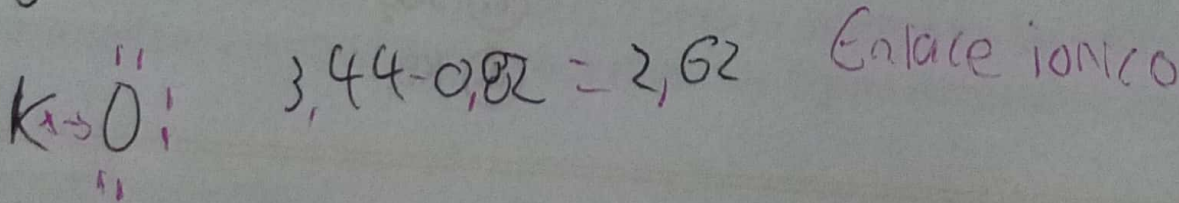 K x→ O : 3,44-0,82 = 2,62 Enlace ionico